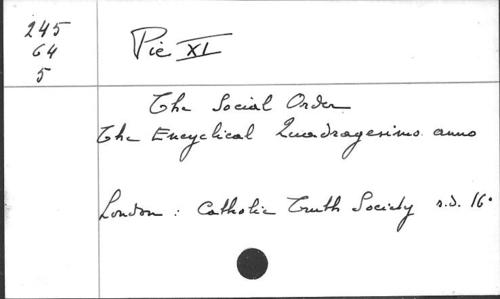 245
64
5
Pie XI
The Social Order
The Encyclical Quadragesimo anno
London : Catholic Truth Society s.d. 16°